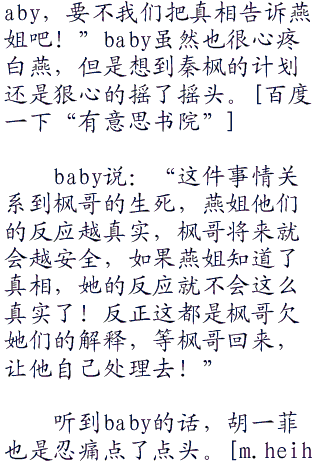 aby，要不我们把真相告诉燕
姐吧！”baby虽然也很心疼
白燕，但是想到秦枫的计划
还是狠心的摇了摇头。[百度
一下“有意思书院”]
baby说：“这件事情关
系到枫哥的生死，燕姐他们
的反应越真实，枫哥将来就
会越安全，如果燕姐知道了
真相，她的反应就不会这么
真实了！反正这都是枫哥欠
她们的解释，等枫哥回来，
让他自己处理去！”
听到baby的话，胡一菲
也是忍痛点了点头。[m.heih